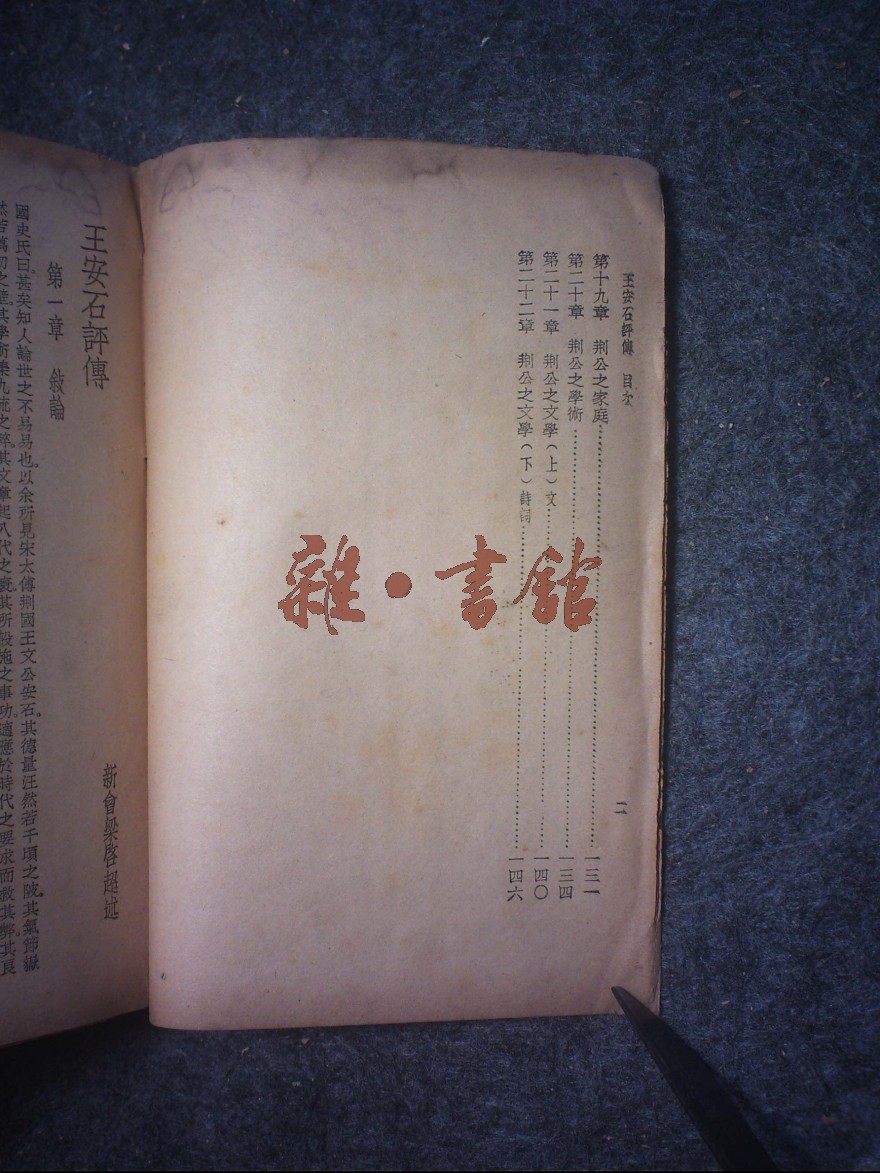 王安石評傳 目次
二
第十九章 荆公之家庭……一三一
第二十章 荆公之學術……一三四
第二十一章 荆公之文學(上)文……一四〇
第二十二章 荆公之文學(下)詩詞……一四六
雜·書館
新會梁啓超述
王安石評傳
第一章 敍論
國史氏曰。甚矣知人論世之不易易也。以余所見宋太傅荆國王文公安石。其德量汪然若千頃之陂。其氣節嶽
然若萬仞之崖。其學術集九流之粹。其文章起八代之衰。其所設施之事功。適應於時代之要求而救其弊。其良